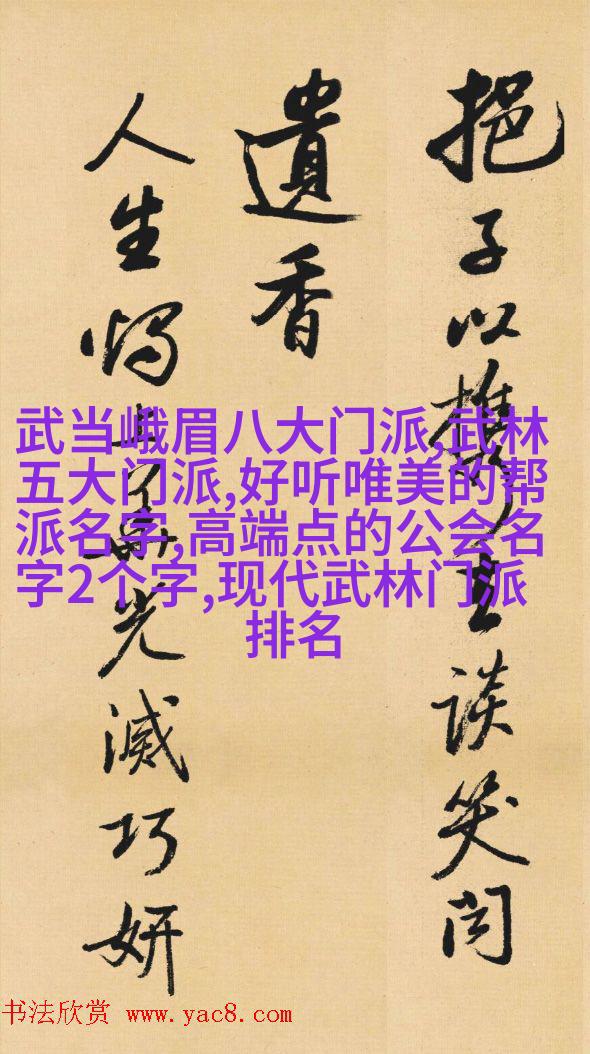 挹子以談笑問
遺香
人生光滅巧妍
武当峨眉八大门派,武林
五大门派,好听唯美的帮
派名字,高端点的公会名
字2个字,现代武林门派
排名
书法欣赏 www.yac8.com